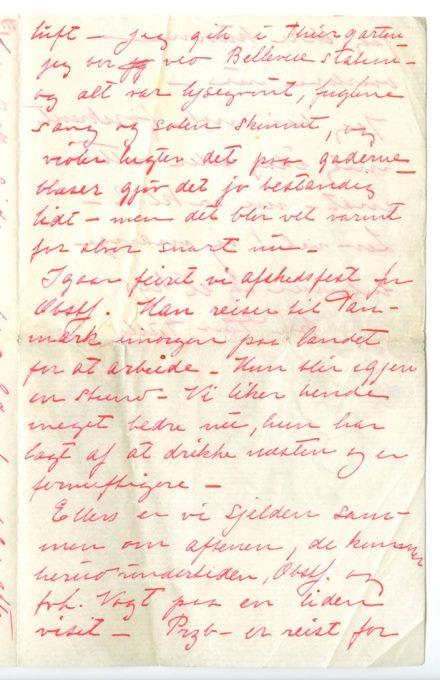 luft – jeg gik i Thiergarten
jeg bor ved Bellevue station –
og alt var lysegrønt, fuglene
sang og solen skinnet, og
violer lugter det paa gaderne
blaser gjør det jo bestandig
lidt – men det blir vel varmt
for alvor snart nu –
Igaar feiret vi afskedsfest for
Obstf. Han reiser til Dan-
mark imorgen paa landet
for at arbeide – Hun blir igjen
en stund – Vi liker hende
meget bedre nu, hun har
lagt af at drikke næsten og er
fornuftigere –
Ellers er vi sjelden sam-
men om aftenen, de kommer
herind undertiden, Obstf. og
frk. Vogt paa en liden
visit – Przb – er reist for